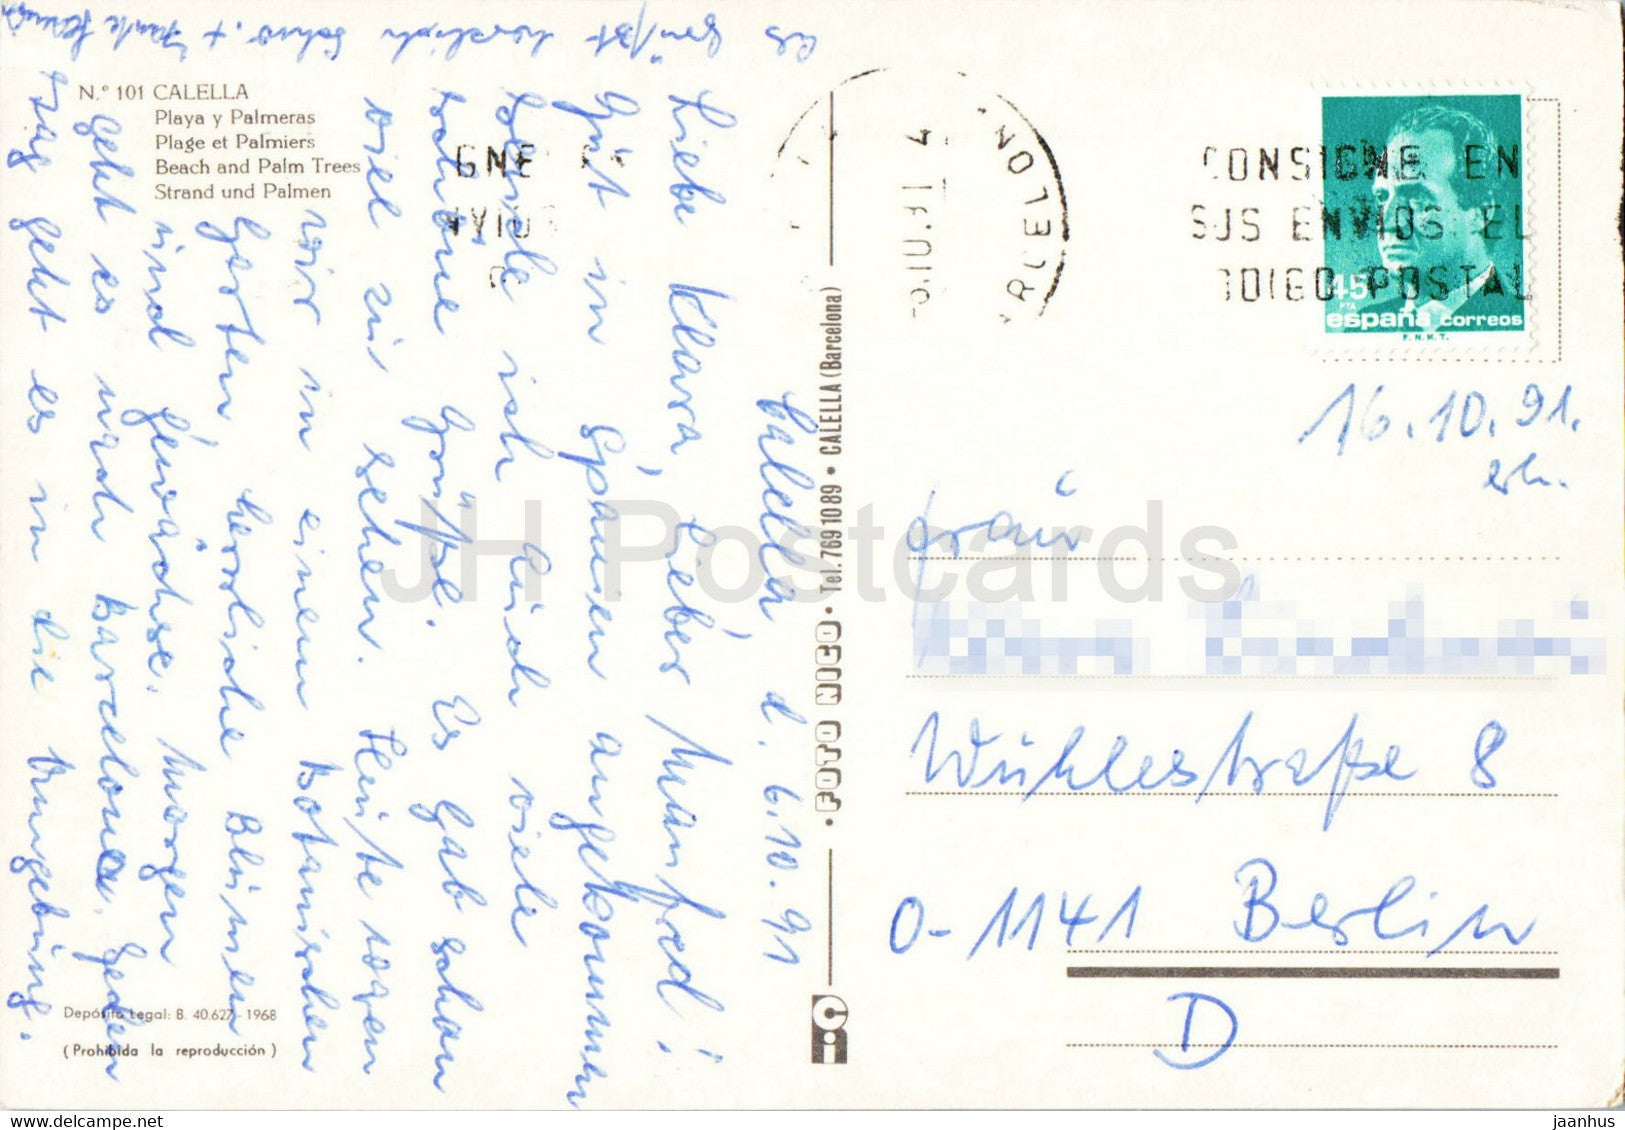 N.º 101 CALELLA
Playa y Palmeras
Plage et Palmiers
Beach and Palm Trees
Strand und Palmen
Calella, d. 6.10.91
Liebe Klara, lieber Manfred!
Gut in Spanien angekommen
sende ich euch viele
schöne Grüße. Es gab schon
viel zu sehen. Heute waren
wir in einem Botanischen
Garten, herrliche Blumen
und Gewächse. Morgen
geht es nach Barcelona. Jeden
Tag geht es in die Umgebung.
Es grüßt herzlich + Tante
Depósito Legal: B. 40.627 - 1968
(Prohibida la reproducción)
• FOTO NIEGO • Tel. 769 10 89 • CALELLA (Barcelona)
CONSIGNE EN
SUS ENVIOS EL
CODIGO POSTAL
GNE
45
PTA
españa correos
F.N.M.T.
16.10.91.
erh.
Frau
Wuhlestraße 8
O-1141 Berlin
D
JH Postcards
hippostcard.com
jaanhus